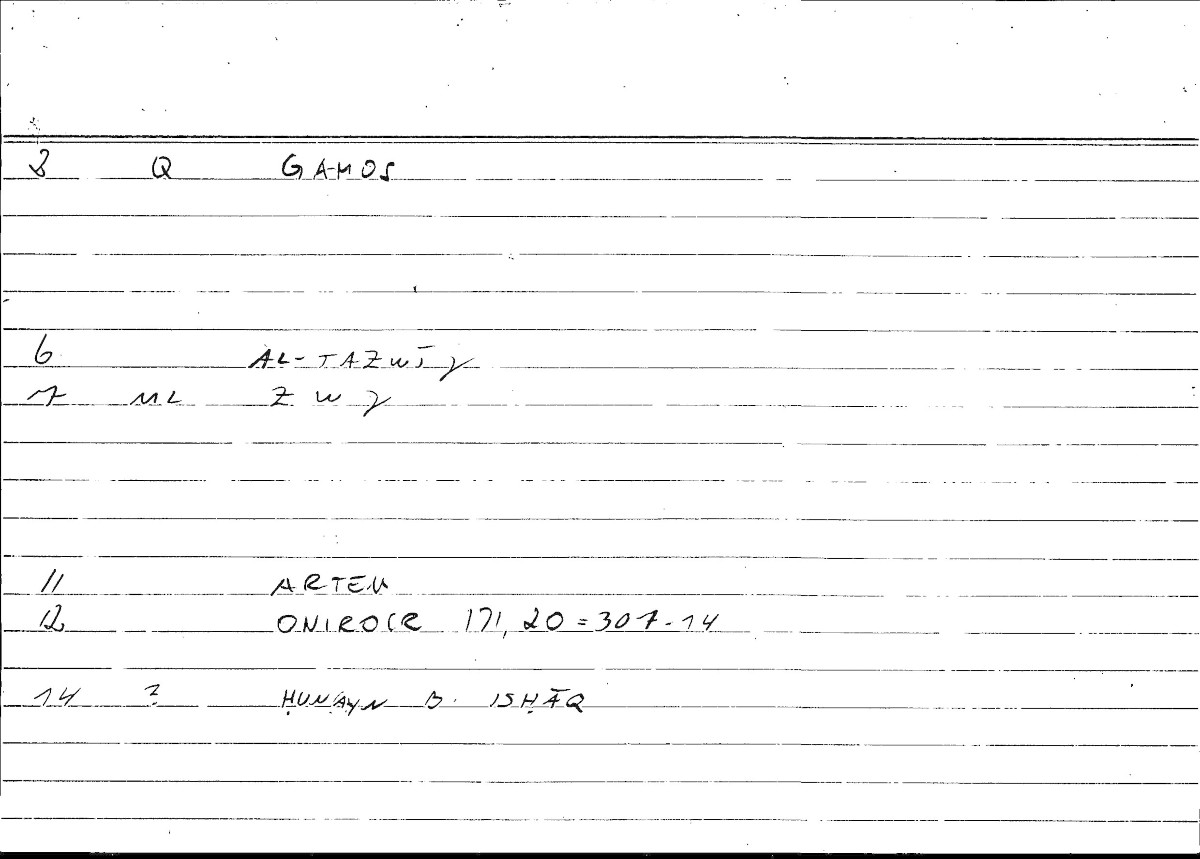 3 Q GAMOS
6 AL-TAZWĪȷ
7 ML ZWȷ
11 ARTEM
12 ONIROCR 171,20=307-14
14 ? ḤUNAYN B. ISḤĀQ